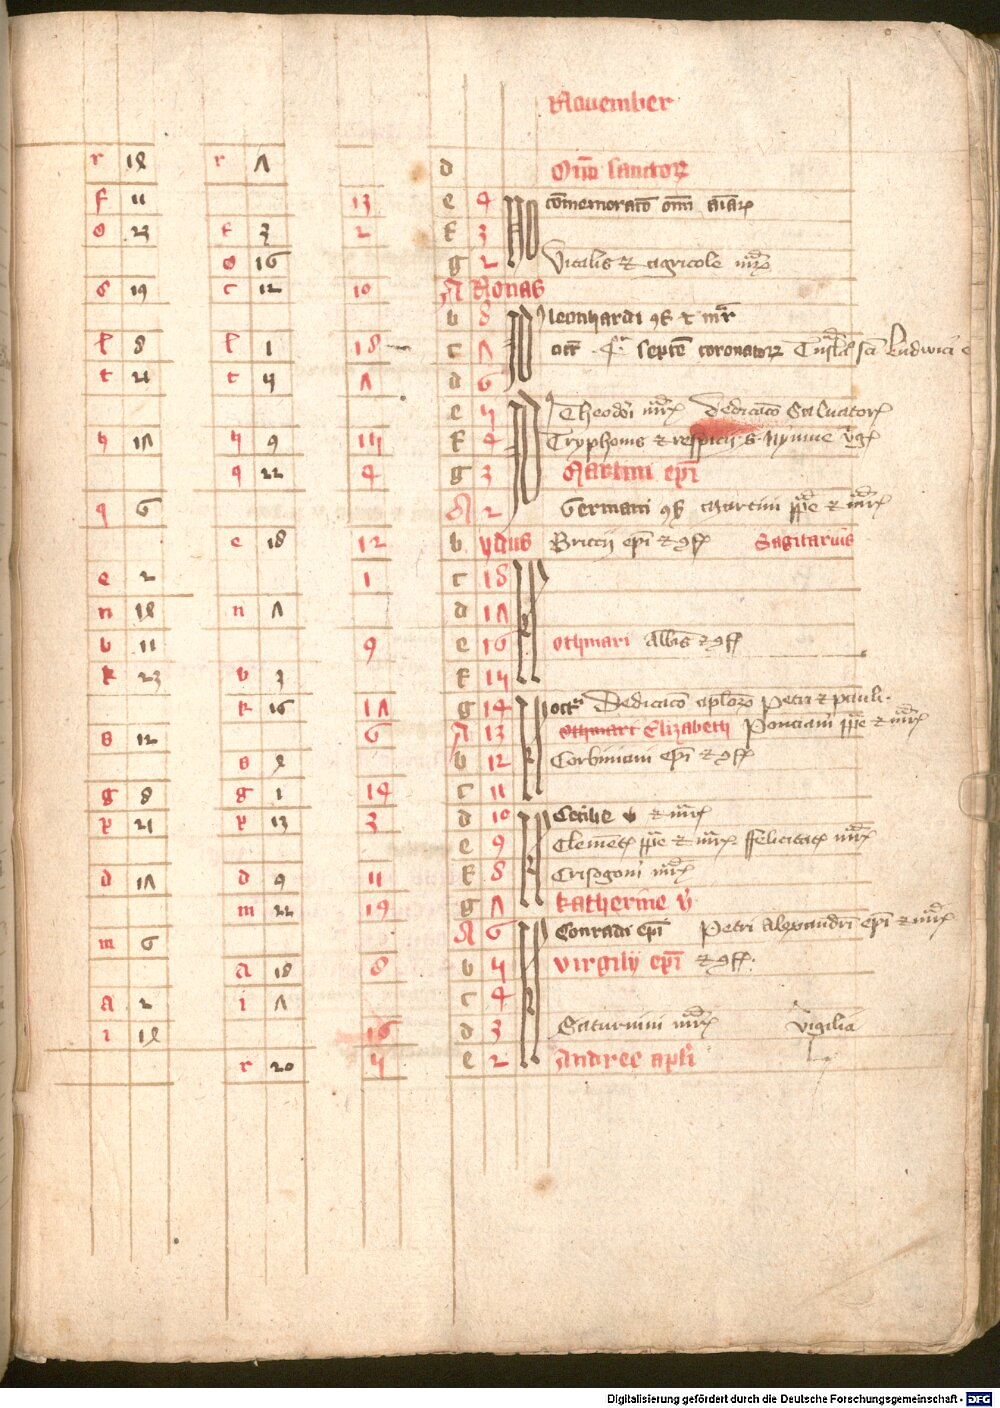 November
r 18 r ʌ d Om̄ sanctoꝝ
f 11 13 e 4 No co̅memorat̅o om̅ ai̅aꝝ
o 23 f 3 2 f 3
o 16 g 2 Vitalis et agricole mr̅m
c 19 c 12 10 A Nonas
b 8 Id leonhardi ꝯf et mr̅
l 8 l 1 18 c ʌ oct septe̅ coronatoꝝ sci̅ ludwici e
t 21 t 4 ʌ d 6
e 4 Id Theodori mr̅m dedicac̅o Saluatoris
4 1ʌ 4 9 14 f 4 Tryphonis et respicij s. Nymue v̅gs
q 22 4 g 3 Martini ep̅i
q 6 A 2 Germani ꝯf Martini pp̅e et mr̅s
e 18 12 b ydus Briccij ep̅i et ꝯff Sagitarius
e 2 1 c 18 kl
n 18 n ʌ d 1ʌ
b 11 9 e 16 othmari Abbis et ꝯff
k 23 b 3 f 14
k 16 1ʌ g 14 kl octa Dedicac̅o aploꝝ Petri et pauli.
s 12 6 A 13 othmari Elizabeth Ponciani pp̅e et mr̅s
s 8 b 12 Corbiniani ep̅i et ꝯff
g 8 g 1 14 c 11
p 21 p 13 3 d 10 kl Cecilie v et mr̅s
e 9 Clemēt̅s pp̅e et mr̅s ffelicitat̅s mr̅s
d 1ʌ d 9 11 f 8 Crisogoni mr̅s
m 22 19 g ʌ katherine v̅
m 6 A 6 kl Conradi ep̅i Petri Alexandri ep̅i et mr̅s
a 18 8 b 4 virgilij ep̅i et ꝯff.
a 2 i ʌ c 4
i 18 16 d 3 Saturnini mr̅s vigilia
r 20 4 e 2 Andree apl̅i
Digitalisierung gefördert durch die Deutsche Forschungsgemeinschaft - DFG